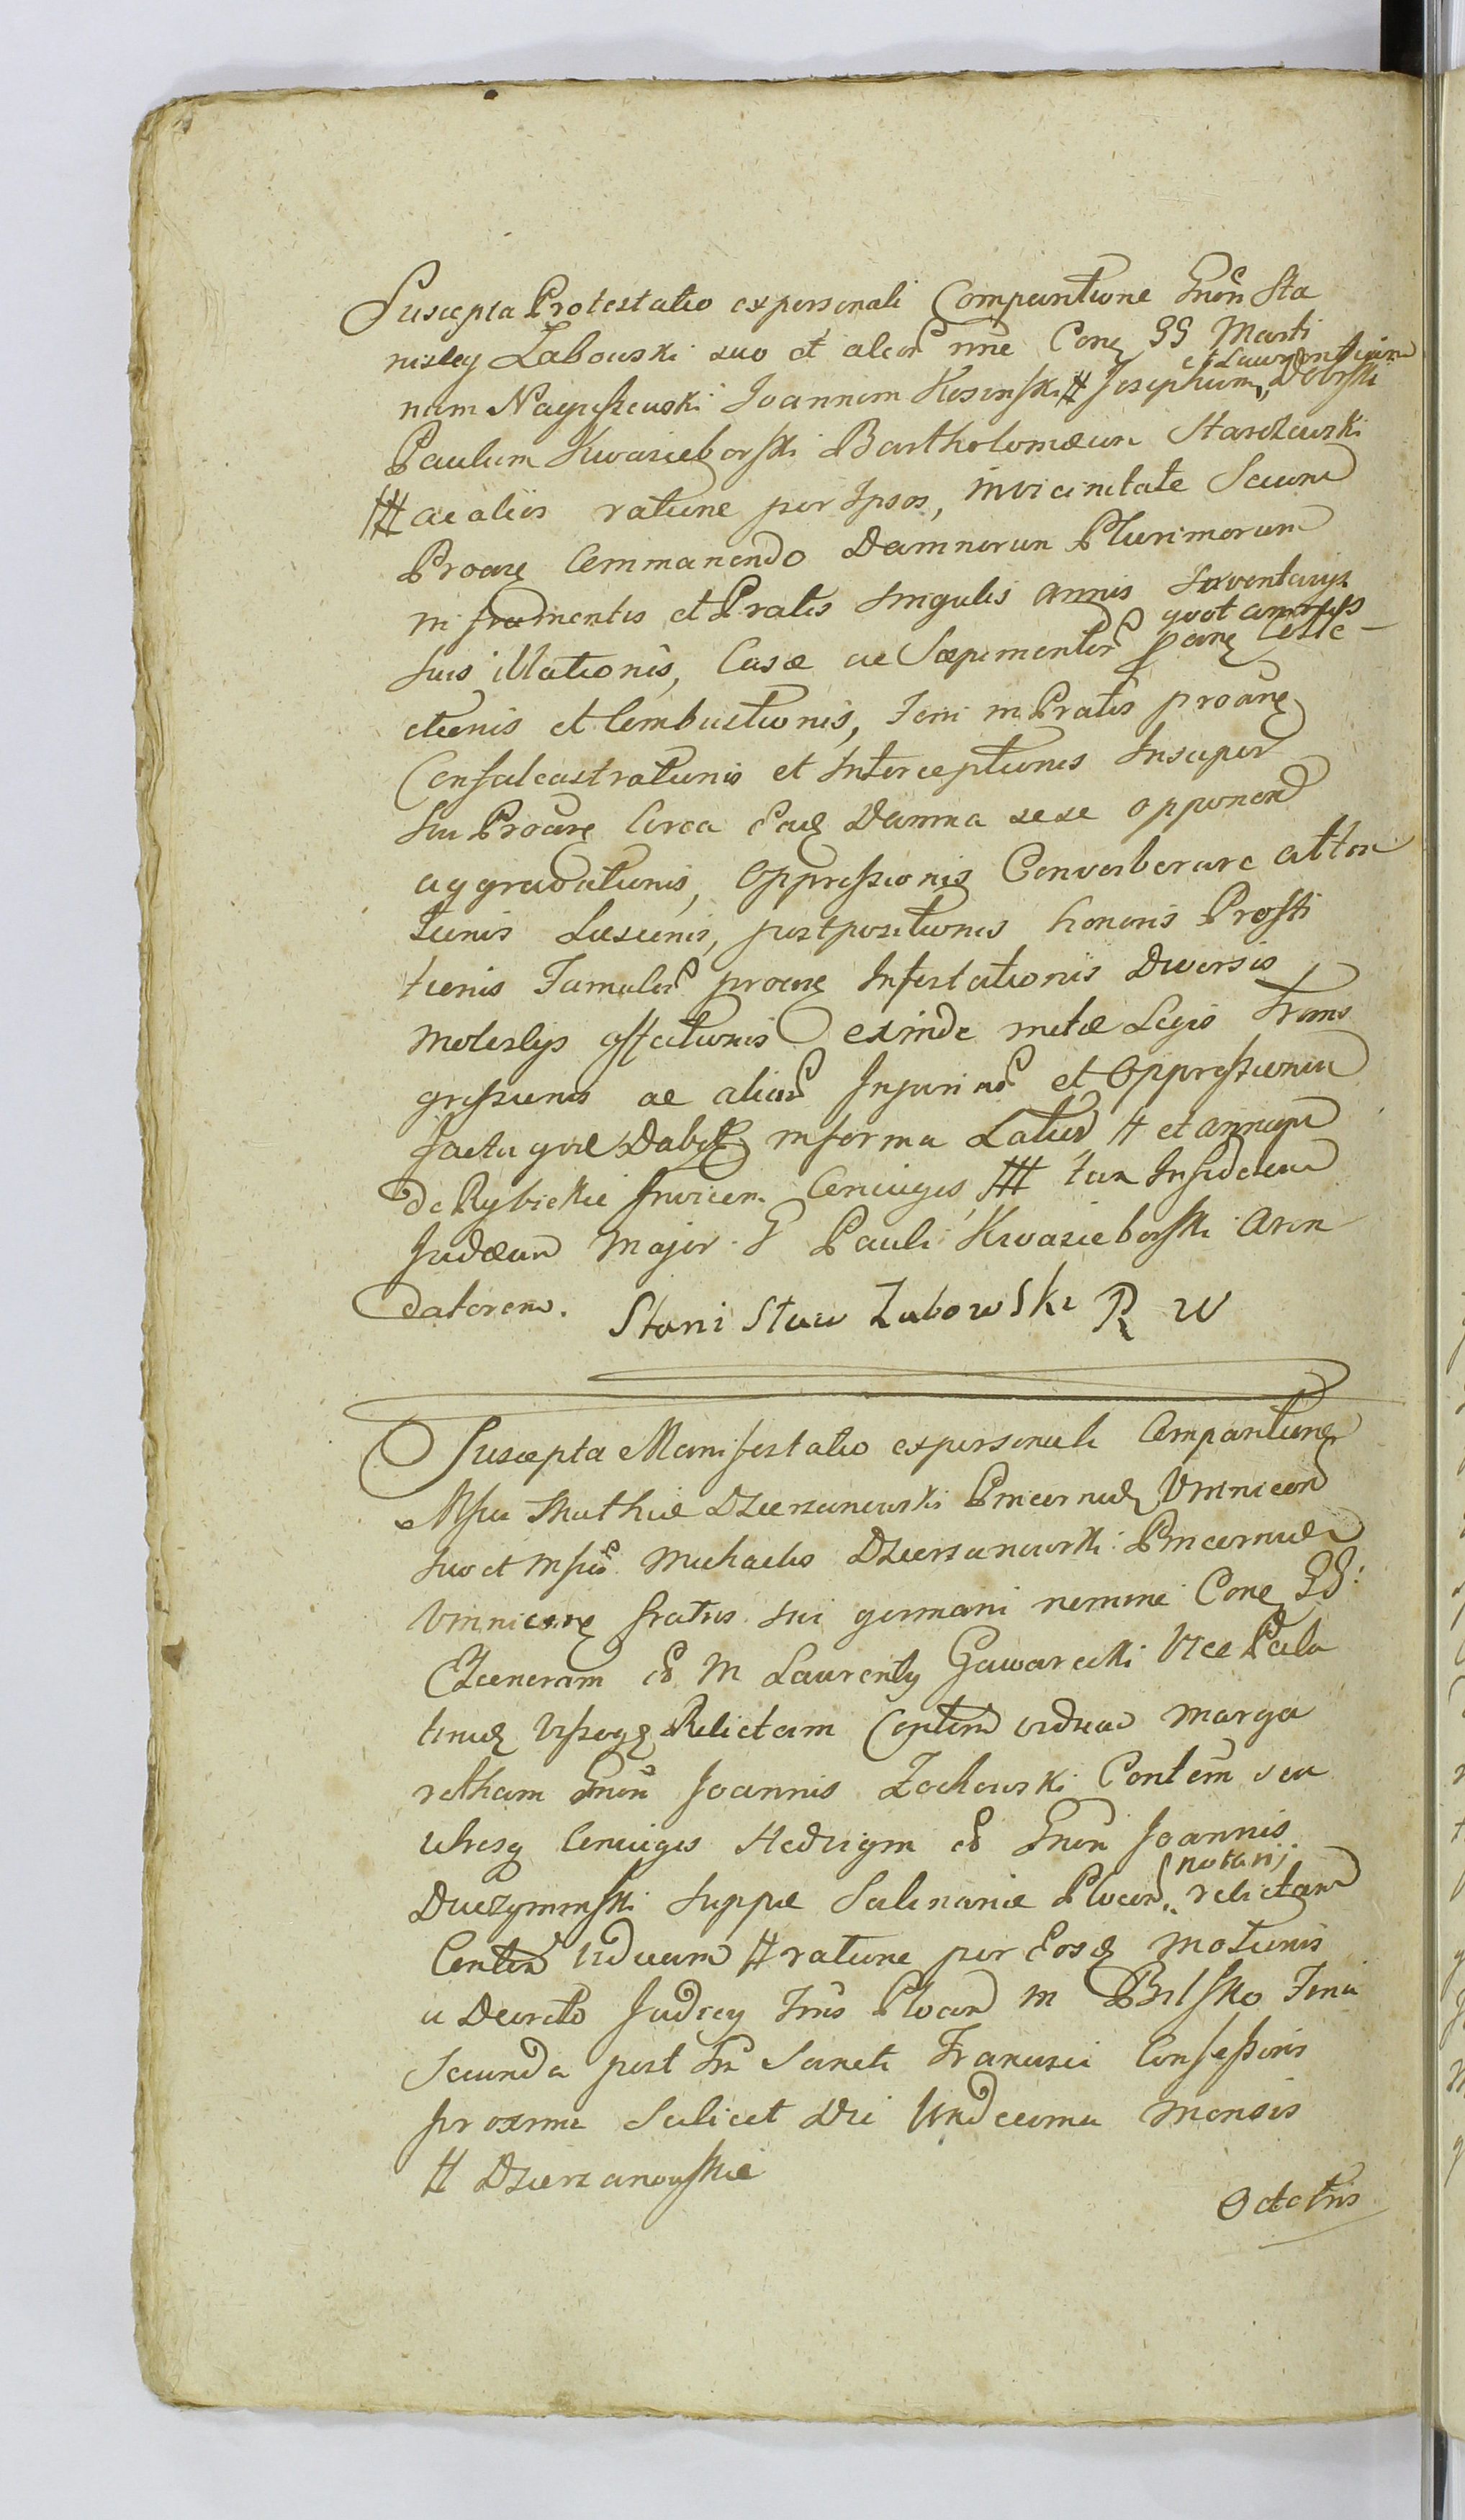 Suscepta Protestatio ex personali Comparitione Gnōn Sta
nislay Zabowski suo et alior nñe Con GG Marti
et Laurentium
num Naguszewski Joannem Kosinski # Josephum, Dobrski
Paulum Kwasieborski Bartholomæum Starczewski
## ac aliis ratione per Ipsos, in vicinitate Secum
Proan Commanendo Damnorum Plurimorum
in frumentis et Pratis singulis annis Inventarijs
quot
suis illationis, Casæ ac Sæpimentor Conf
ctionis et Combustionis, Feni in Pratis proañ
Confalcastrationis et Interceptionis Insuper
sui Proañ Circa Damna sese opponend
aggravationis, Oppressionis Converberare atten
tionis Læsionis, postpositionis honoris Prosti
tionis Famulor proañ Infestationis Diversis
Molestijs affectionis exinde metæ Legis Trans
gressionis ac alior Injuriar et Oppressionum
facta quæ Dab in forma Latior # et
de Rybickie Invicem Coniuges, ## tum Infidelem
Judæum Major G Pauli Kwasieborski Aren
datorem. Stanisław Zabowski R W
Suscepta Manifestatio ex personali Comparitione
Mfci Mathiæ Dzierzanowski Pincernid Vinnicen
suo et Mfci Michaelis Dzierzanowski Pincernid
Vinnicen fratris sui germani nomine Con GG:
Generam M Laurenty Gawarecki Vice Pala
tinid Vissog Relictam Viduam Marga
retham Gnōn Joannis Zochowski Contem seu
Coniuges Hedvigm Gnōn Joannis
notarij
Duczyminski Suppæ Salinariæ Plocen relictam
Viduam # ratione per Eosd Motionis
a Decreto Judicy Tris Plocen in Bielsko Feria
Secunda post Fm Sancti Francisci Confessoris
proxima Scilicet Die Undecima Mensis
# Dzierzanowskie
Octobris